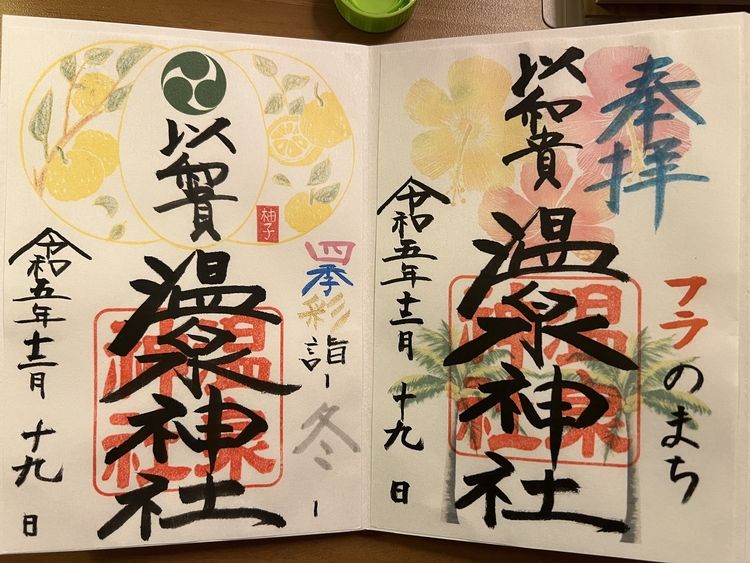 奉拝
フラのまち
以和貴
温泉神社
温泉神社
令和五年十二月十九日
四季彩詣ー冬ー
柚子
以和貴
温泉神社
温泉神社
令和五年十二月十九日